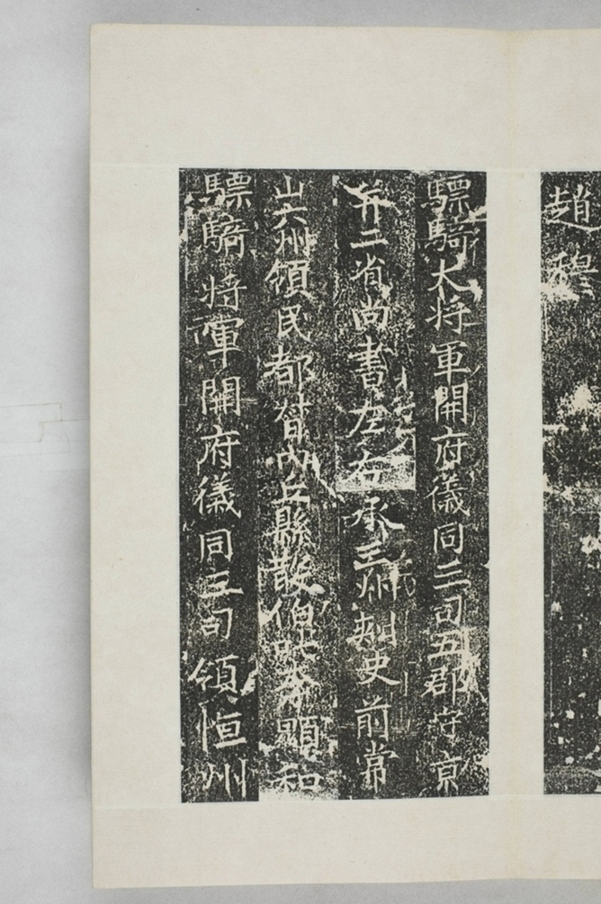 趙穆
驃騎大將軍開府儀同三司五郡守京
并二省尚書左右丞三州刺史前常
山六州領民都督內丘縣散伯皇甫顯和
驃騎將軍開府儀同三司領恒州